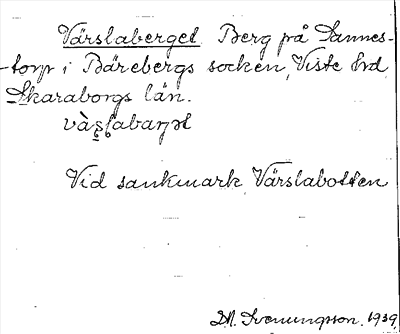 Värslaberget. Berg på Dannes-
-torp i Bärebergs socken, Viste hrd
Skaraborgs län.
vàʂ̣ḷabaŋət
Vid sankmark Värslabotten
D.A. Svenungsson. 1939.